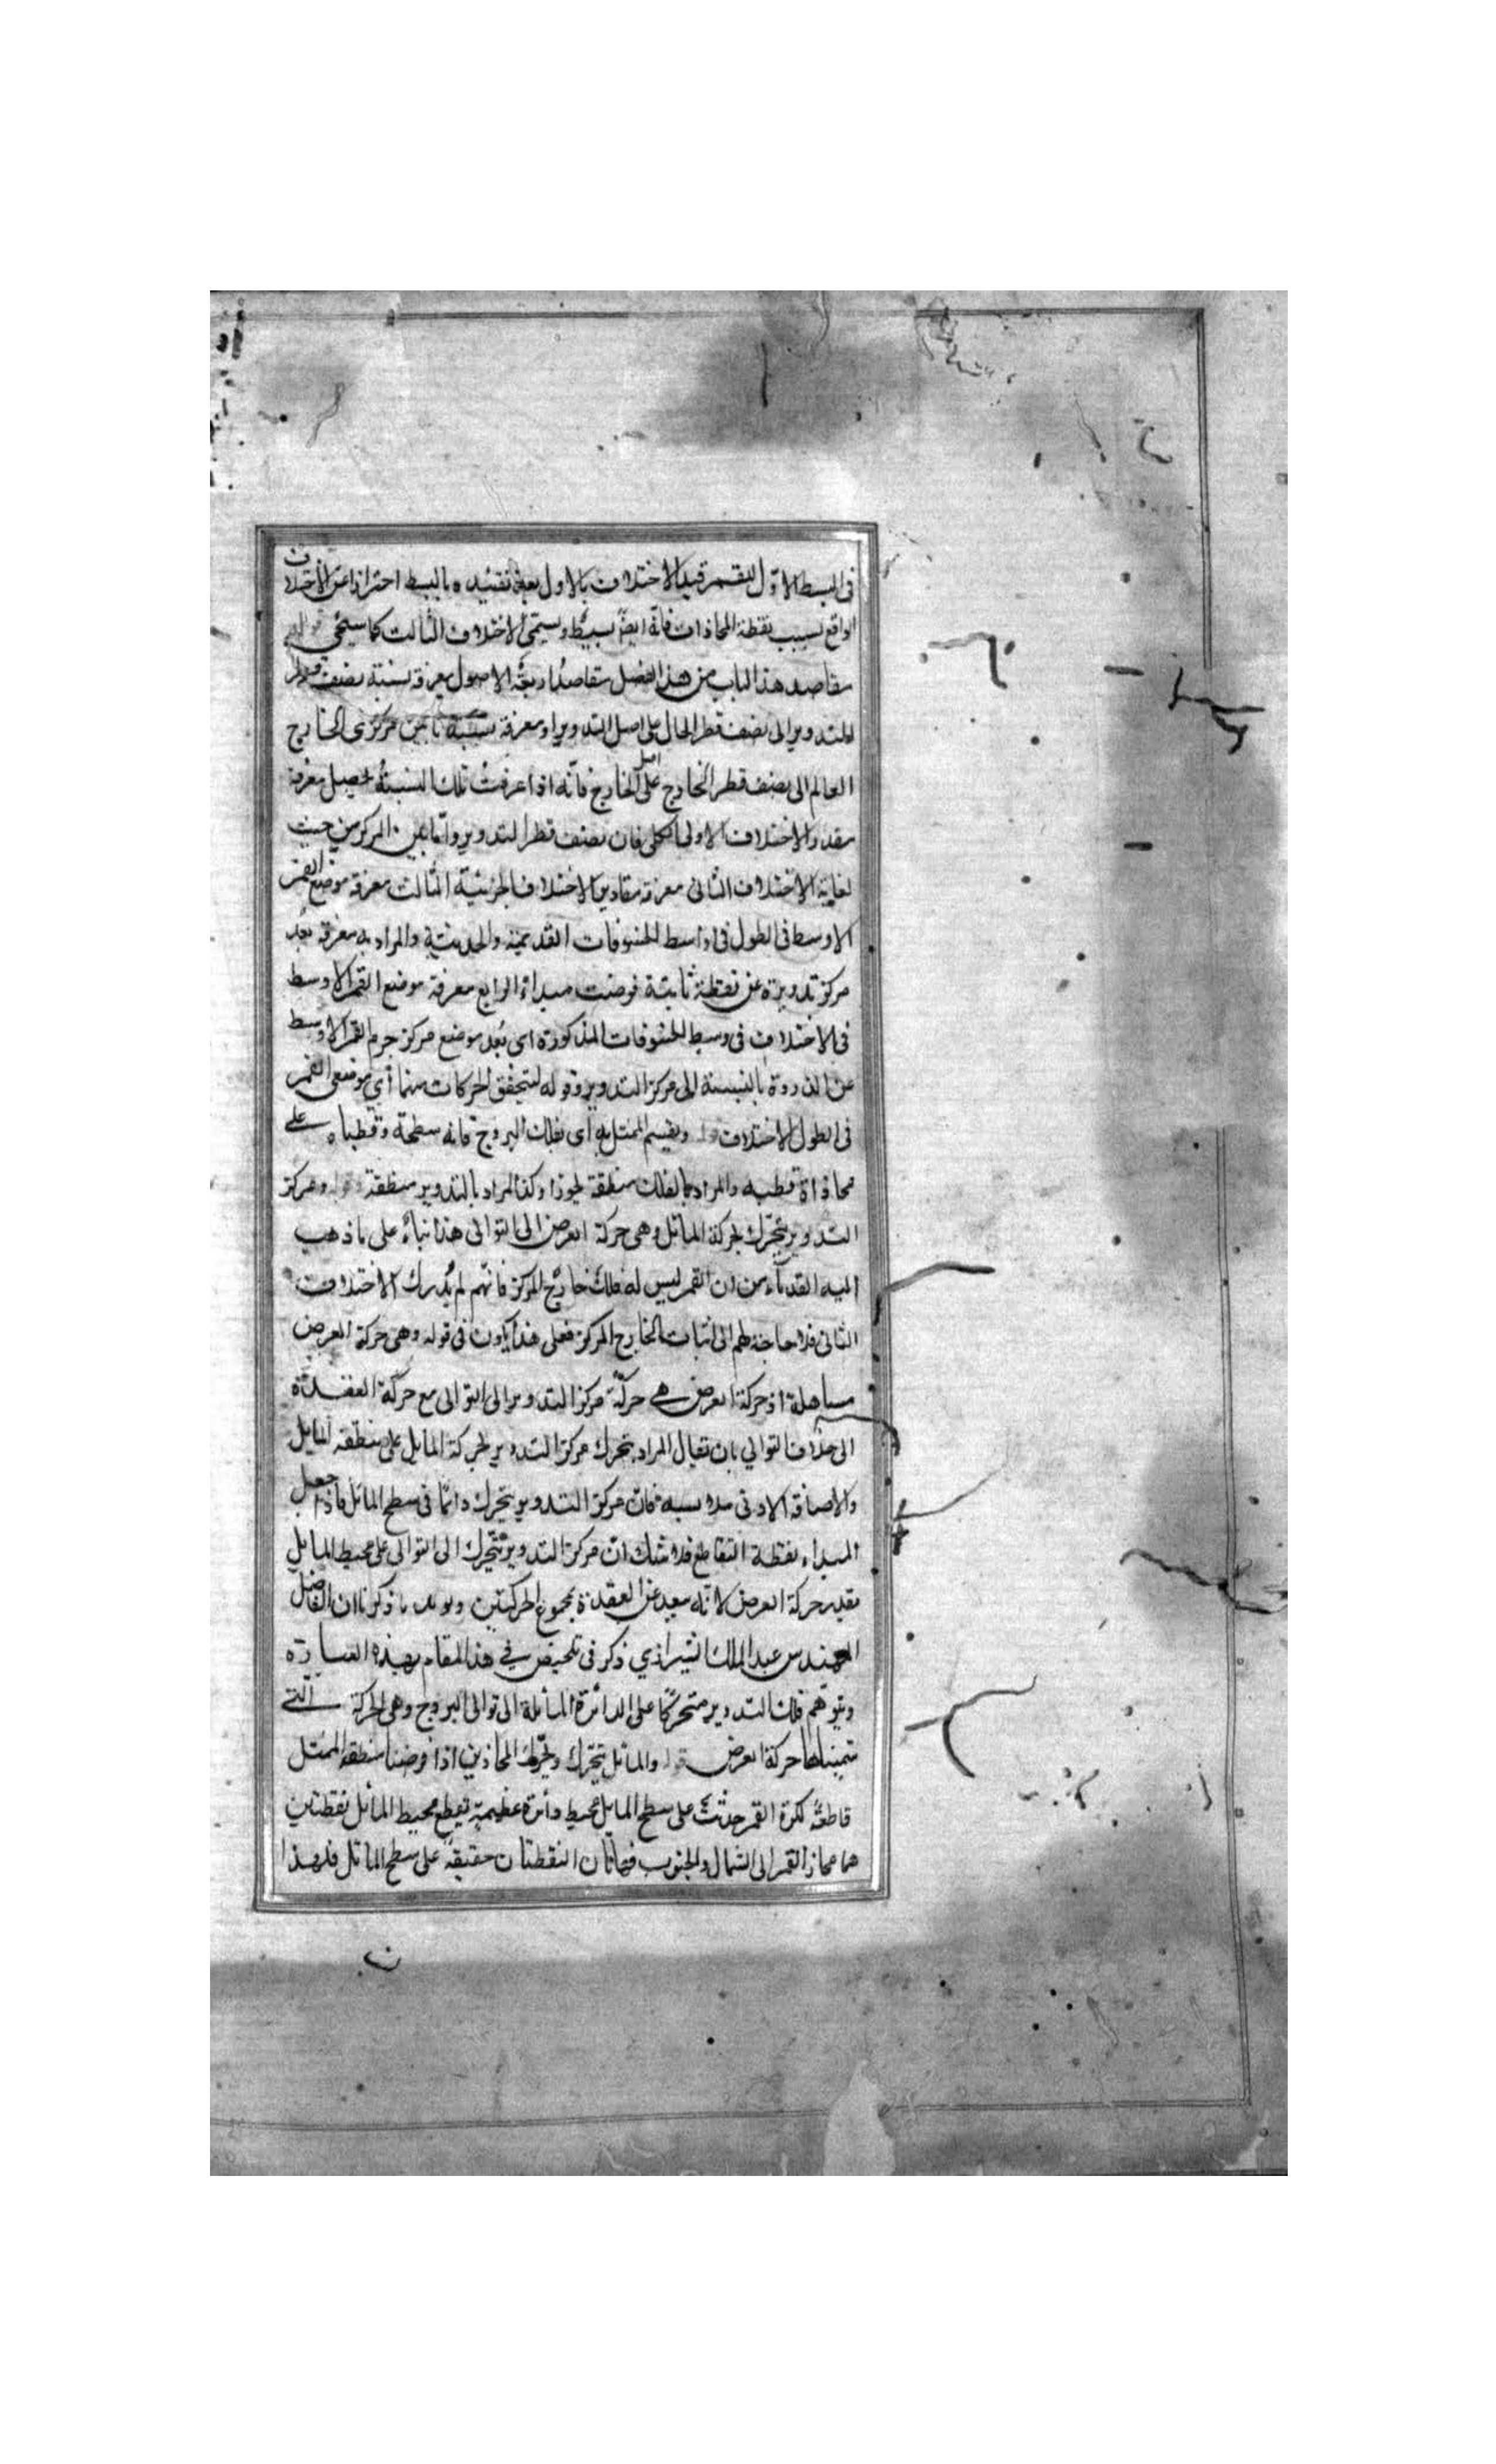 في البسيط الاول للقمر قيد الاختلاف بالاول بعد تقييده بالبسيط احترازا عن الاختلاف
الواقع بسبب نقطة المحاذات فانه ايضا بسيط ويسمى الاختلاف الثالث كما سيجي قوله
مقاصد هذا الباب من هذا الفصل مقاصد اربعة الاول معرفة نسبة نصف قطر
التدوير الى نصف قطر الحامل على اصل التدوير او معرفة نسبة ما بين مركزى الخارج
العالم الى نصف قطر الخارج على اصل الخارج فانه اذا عرفت تلك النسبة يحصل معرفة
مقدار الاختلاف الاول الكلى فان نصف قطر التدوير وما بين المركزين حيث
لغاية الاختلاف الثانى معرفة مقادير الاختلاف الجزئية الثالث معرفة موضع القمر
الاوسط فى الطول فى اواسط الخسوفات القديمة والحديثة والمراد به معرفة بعد
مركز تدويره عن نقطة ثابتة فرضت مبداء الرابع معرفة موضع القمر الاوسط
فى الاختلاف فى وسط الخسوفات المذكورة اى بعد موضع مركز جرم القمر الاوسط
عن الذروة بالنسبة الى مركز التدوير وقوله لتحقق الحركات منها أي موضعى القمر
فى الطول الاختلاف قوله ويقسم الممثل به اى بفلك البروج فانه سطحة وقطباه على
محاذاة قطبيه والمراد بالفلك منطقة تجوزا وكذا المراد بالتدوير منطقة قوله ومركز
التدوير يتحرك بحركة المائل وهى حركة العرض الى التوالى هذا بناء على ما ذهب
اليه القدماء من ان القمر ليس له فلك خارج المركز فانهم لم يدرك الاختلاف
الثانى فلا حاجة لهم الى اثبات الخارج المركز فعلى هذا يكون فى قوله وهى حركة العرض
مساهلة اذ حركة العرض هي حركة مركز التدوير الى التوالى مع حركة العقدة
الى خلاف التوالي بان يقال المراد بتحرك مركز التدوير بحركة المايل على منطقة المايل
والاضافة لادنى ملابسة فان مركز التدوير يتحرك دائما فى سطح المائل فاذا جعل
المبداء نقطة التقاطع فلا شك ان مركز التدوير يتحرك الى التوالى على محيط المايل
بقدر حركة العرض لانه يبعد عن العقدة بمجموع الحركتين ويويد ما ذكرنا ان الفاضل
المهندس عبد الملك الشيرازي ذكر فى تلخيص في هذا المقام بهذه العبارة
ويتوهم فلك التدوير متحركا على الدائرة المائلة الى توالى البروج وهى الحركة التي
سميناها حركة العرض قوله والمائل يتحرك ويحرك المحاذيين اذا فرضنا منطقة الممثل
قاطعة لكرة القمر حدثت على سطح المايل محيط دائرة عظيمة يقطع محيط المائل بنقطتين
هما مجاز القمر الى الشمال والجنوب فهاتان النقطتان حقيقة على سطح المائل فلهذا